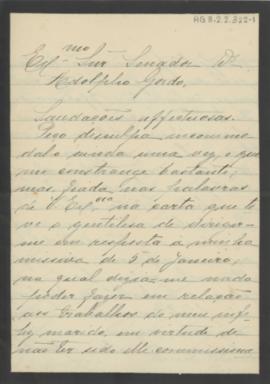 AG 8.2.2.322-1
Exmo Snr Senador Dr
Adolpho Gordo.
Saudações affectuosas.
Peço desculpa incommo-
dalo ainda uma vez, o que
me constrange bastante;
mas, fiada nas palavras
de V. Exª na carta que te-
ve a gentileza de dirigir-
me em resposta a minha
missiva de 5 de Janeiro,
na qual dizia-me nada
poder fazer em relação
aos trabalhos de meu infe-
liz marido, em virtude de
não ter sido elle commissiona